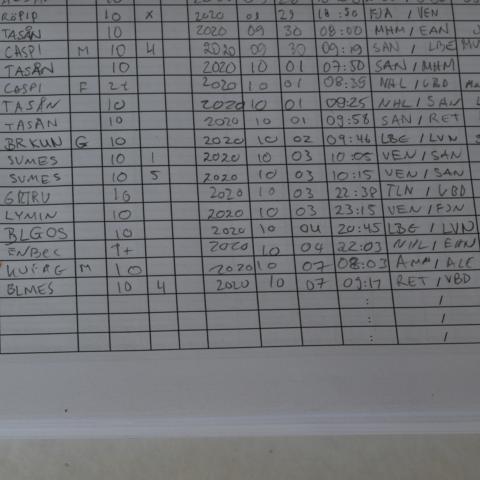 10 x 2020 09 29 18:50 FJA / VEN
TASAN 10 2020 09 30 08:00 MHM / EAN
CASPI M 10 4 2020 09 30 09:19 SAN / LBE
TASAN 10 2020 10 01 07:50 SAN / MHM
CASPI F 2+ 2020 10 01 08:35 NHL / VBD
TASAN 10 2020 10 01 09:25 NHL / SAN
TASAN 10 2020 10 01 09:58 SAN / RET
BRKUN G 10 2020 10 02 09:46 LBE / LVN
SUMES 10 1 2020 10 03 10:05 VEN / SAN
SUMES 10 5 2020 10 03 10:15 VEN / SAN
10 2020 10 03 22:38 TLN / VBD
LYMIN 10 2020 10 03 23:15 VEN / FJN
BLGOS 10 2020 10 04 20:45 LBE / LVN
ENBEC 1+ 2020 10 04 22:03 NHL / EAN
M 10 2020 10 07 08:03
BLMES 10 4 2020 10 07 09:17 RET / VBD
: /
: /
: /